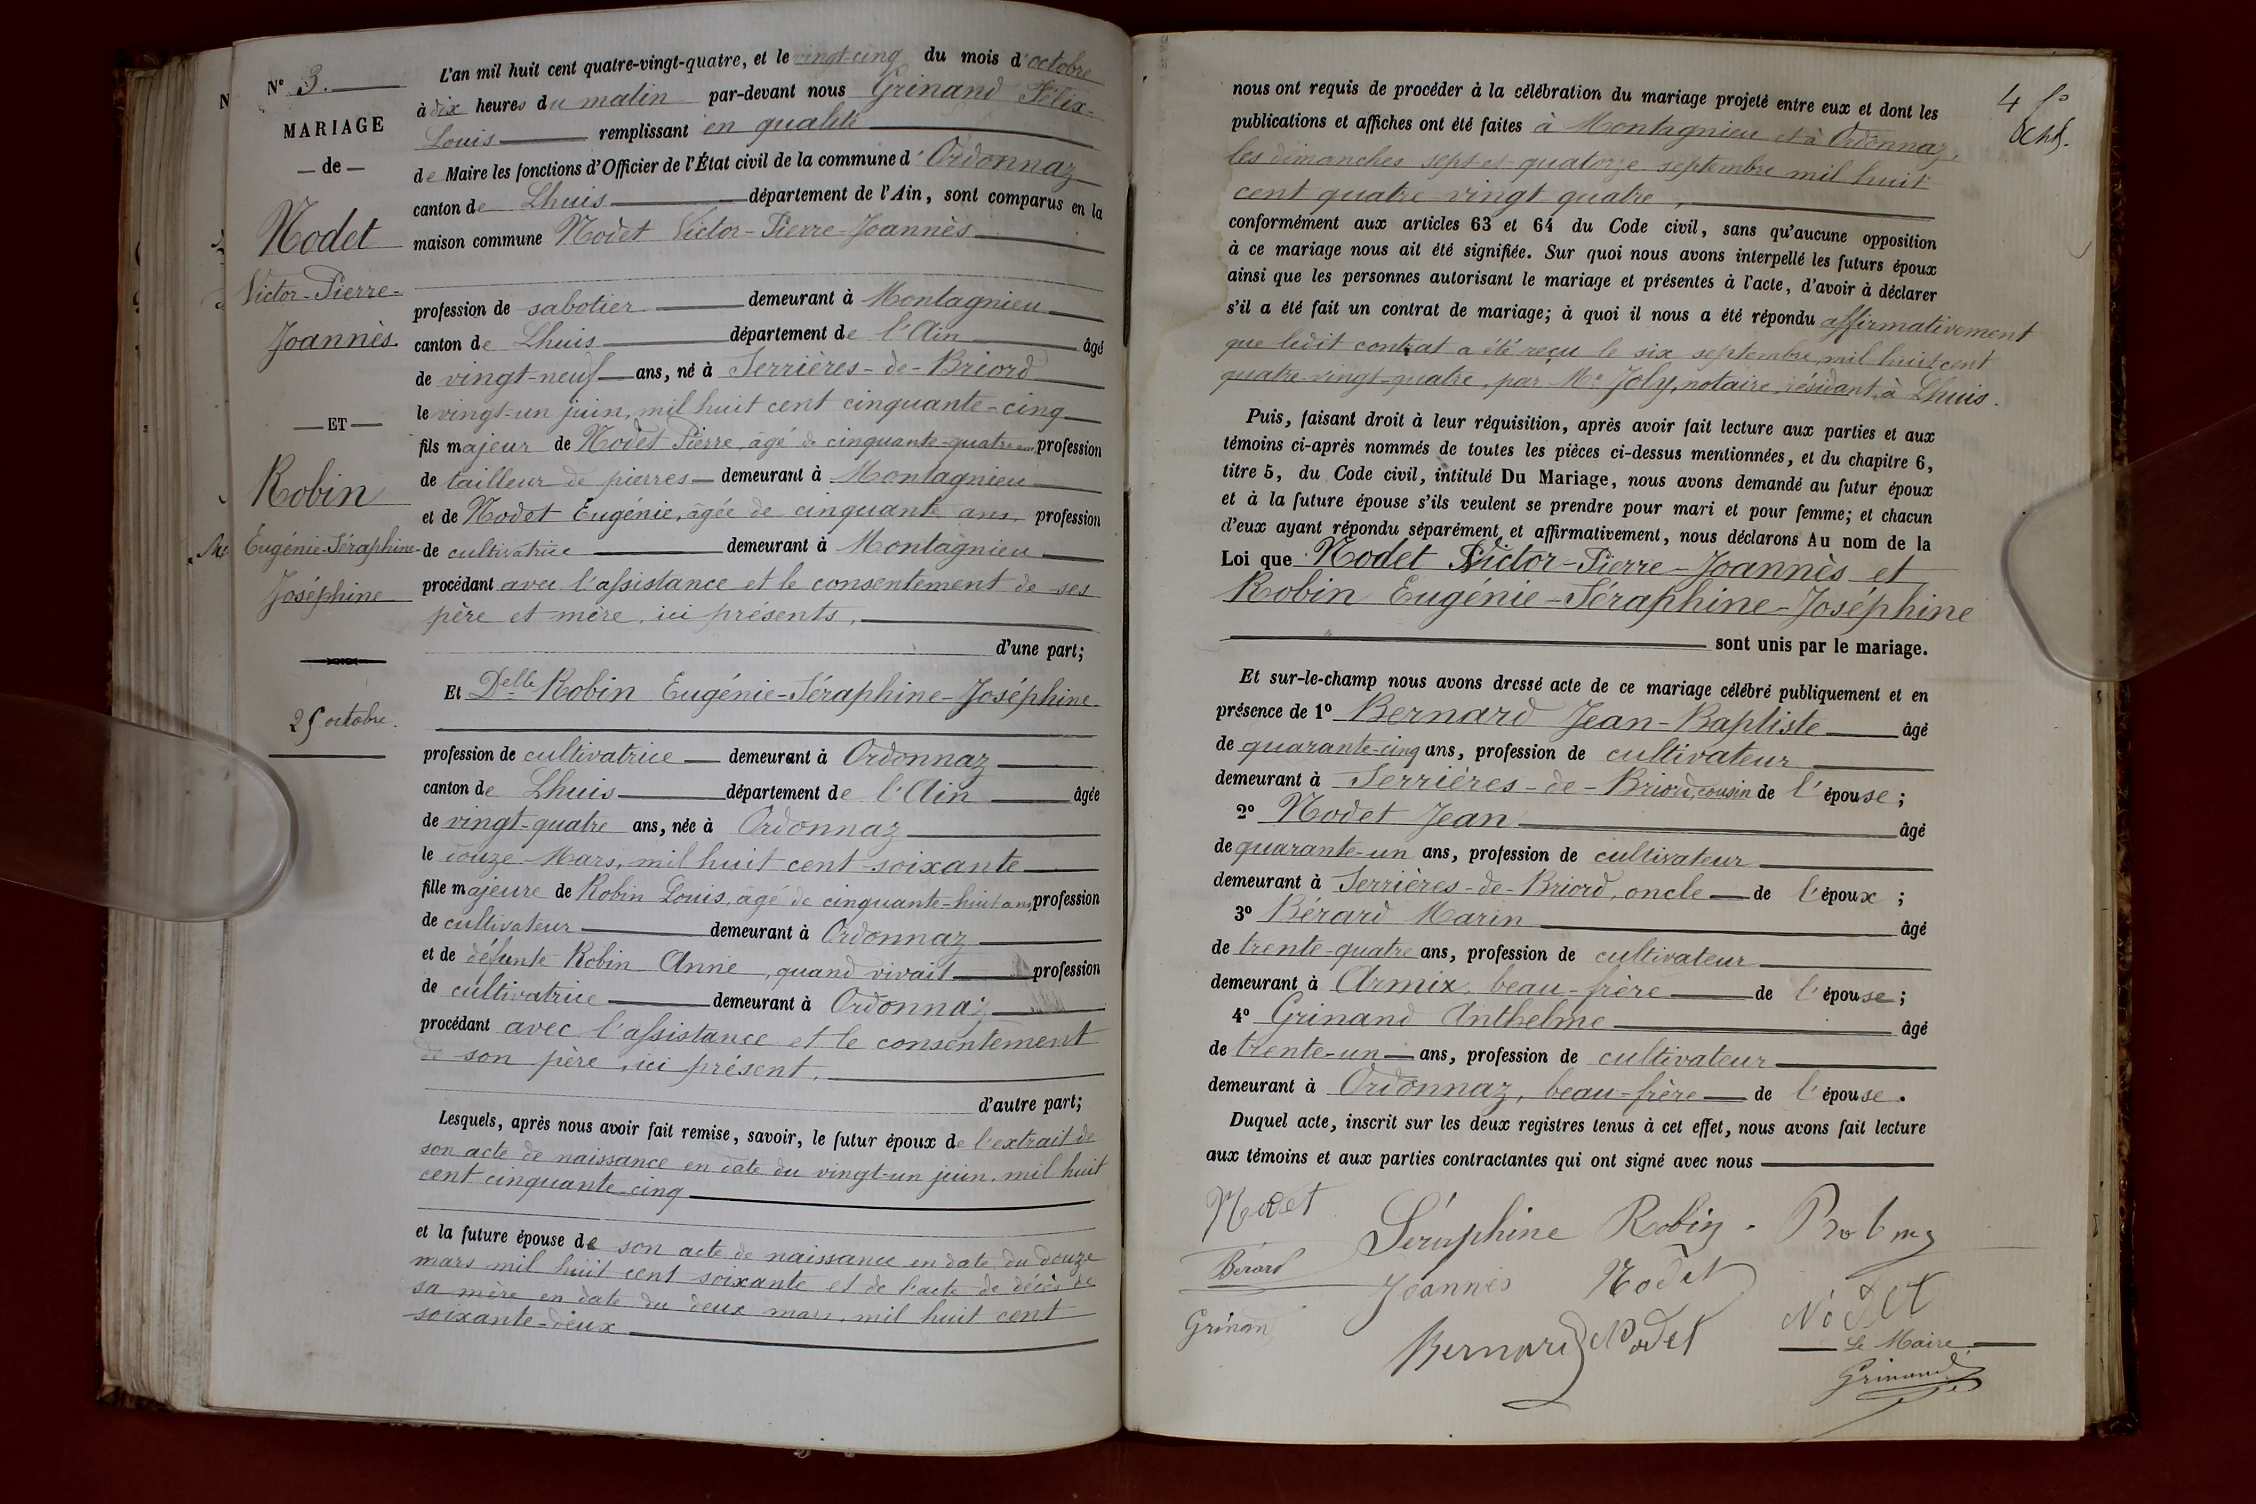 N° 3.
MARIAGE
— de —
Nodet
Victor-Pierre-
Joannès.
— ET —
Robin
Eugénie-Séraphine-
Joséphine
25 octobre.
L'an mil huit cent quatre-vingt-quatre, et le vingt-cinq du mois d'octobre
à dix heures du matin par-devant nous Grinand Félix-
Louis remplissant en qualité
de Maire les fonctions d'Officier de l'État civil de la commune d'Ordonnaz
canton de Lhuis département de l'Ain, sont comparus en la
maison commune Nodet Victor-Pierre-Joannès
profession de sabotier demeurant à Montagnieu
canton de Lhuis département de l'Ain âgé
de vingt-neuf ans, né à Serrières-de-Briord
le vingt-un juin, mil huit cent cinquante-cinq
fils majeur de Nodet Pierre, âgé de cinquante-quatre ans profession
de tailleur de pierres demeurant à Montagnieu
et de Nodet Eugénie, âgée de cinquante ans, profession
de cultivatrice demeurant à Montagnieu
procédant avec l'assistance et le consentement de ses
père et mère, ici présents,
d'une part;
Et Delle Robin Eugénie-Séraphine-Joséphine
profession de cultivatrice demeurant à Ordonnaz
canton de Lhuis département de l'Ain âgée
de vingt-quatre ans, née à Ordonnaz
le douze Mars, mil huit cent soixante
fille majeure de Robin Louis, âgé de cinquante-huit ans, profession
de cultivateur demeurant à Ordonnaz
et de défunte Robin Anne, quand vivait profession
de cultivatrice demeurant à Ordonnaz
procédant avec l'assistance et le consentement
de son père, ici présent,
d'autre part;
Lesquels, après nous avoir fait remise, savoir, le futur époux de l'extrait de
son acte de naissance en date du vingt-un juin, mil huit
cent cinquante-cinq
et la future épouse de son acte de naissance en date du douze
mars mil huit cent soixante et de l'acte de décès de
sa mère en date du deux mars, mil huit cent
soixante-deux
4 fo
nous ont requis de procéder à la célébration du mariage projeté entre eux et dont les
publications et affiches ont été faites à Montagnieu et à Ordonnaz,
les dimanches sept et quatorze septembre mil huit
cent quatre vingt quatre,
conformément aux articles 63 et 64 du Code civil, sans qu'aucune opposition
à ce mariage nous ait été signifiée. Sur quoi nous avons interpellé les futurs époux
ainsi que les personnes autorisant le mariage et présentes à l'acte, d'avoir à déclarer
s'il a été fait un contrat de mariage; à quoi il nous a été répondu affirmativement
que ledit contrat a été reçu le six septembre mil huit cent
quatre-vingt-quatre, par Me Joly, notaire, résidant à Lhuis.
Puis, faisant droit à leur réquisition, après avoir fait lecture aux parties et aux
témoins ci-après nommés de toutes les pièces ci-dessus mentionnées, et du chapitre 6,
titre 5, du Code civil, intitulé Du Mariage, nous avons demandé au futur époux
et à la future épouse s'ils veulent se prendre pour mari et pour femme; et chacun
d'eux ayant répondu séparément et affirmativement, nous déclarons Au nom de la
Loi que Nodet Victor-Pierre-Joannès et
Robin Eugénie-Séraphine-Joséphine
sont unis par le mariage.
Et sur-le-champ nous avons dressé acte de ce mariage célébré publiquement et en
présence de 1° Bernard Jean-Baptiste âgé
de quarante-cinq ans, profession de cultivateur
demeurant à Serrières-de-Briord, cousin de l'épouse;
2° Nodet Jean âgé
de quarante-un ans, profession de cultivateur
demeurant à Serrières-de-Briord, oncle de l'époux;
3° Bérard Marin âgé
de trente-quatre ans, profession de cultivateur
demeurant à Armix, beau-frère de l'épouse;
4° Grinand Anthelme âgé
de trente-un ans, profession de cultivateur
demeurant à Ordonnaz, beau-frère de l'épouse.
Duquel acte, inscrit sur les deux registres tenus à cet effet, nous avons fait lecture
aux témoins et aux parties contractantes qui ont signé avec nous
Nodet Séraphine Robin. Robin
Bérard Joannès Nodet Nodet
Grinan Bernard Nodet
Le Maire
Grinand